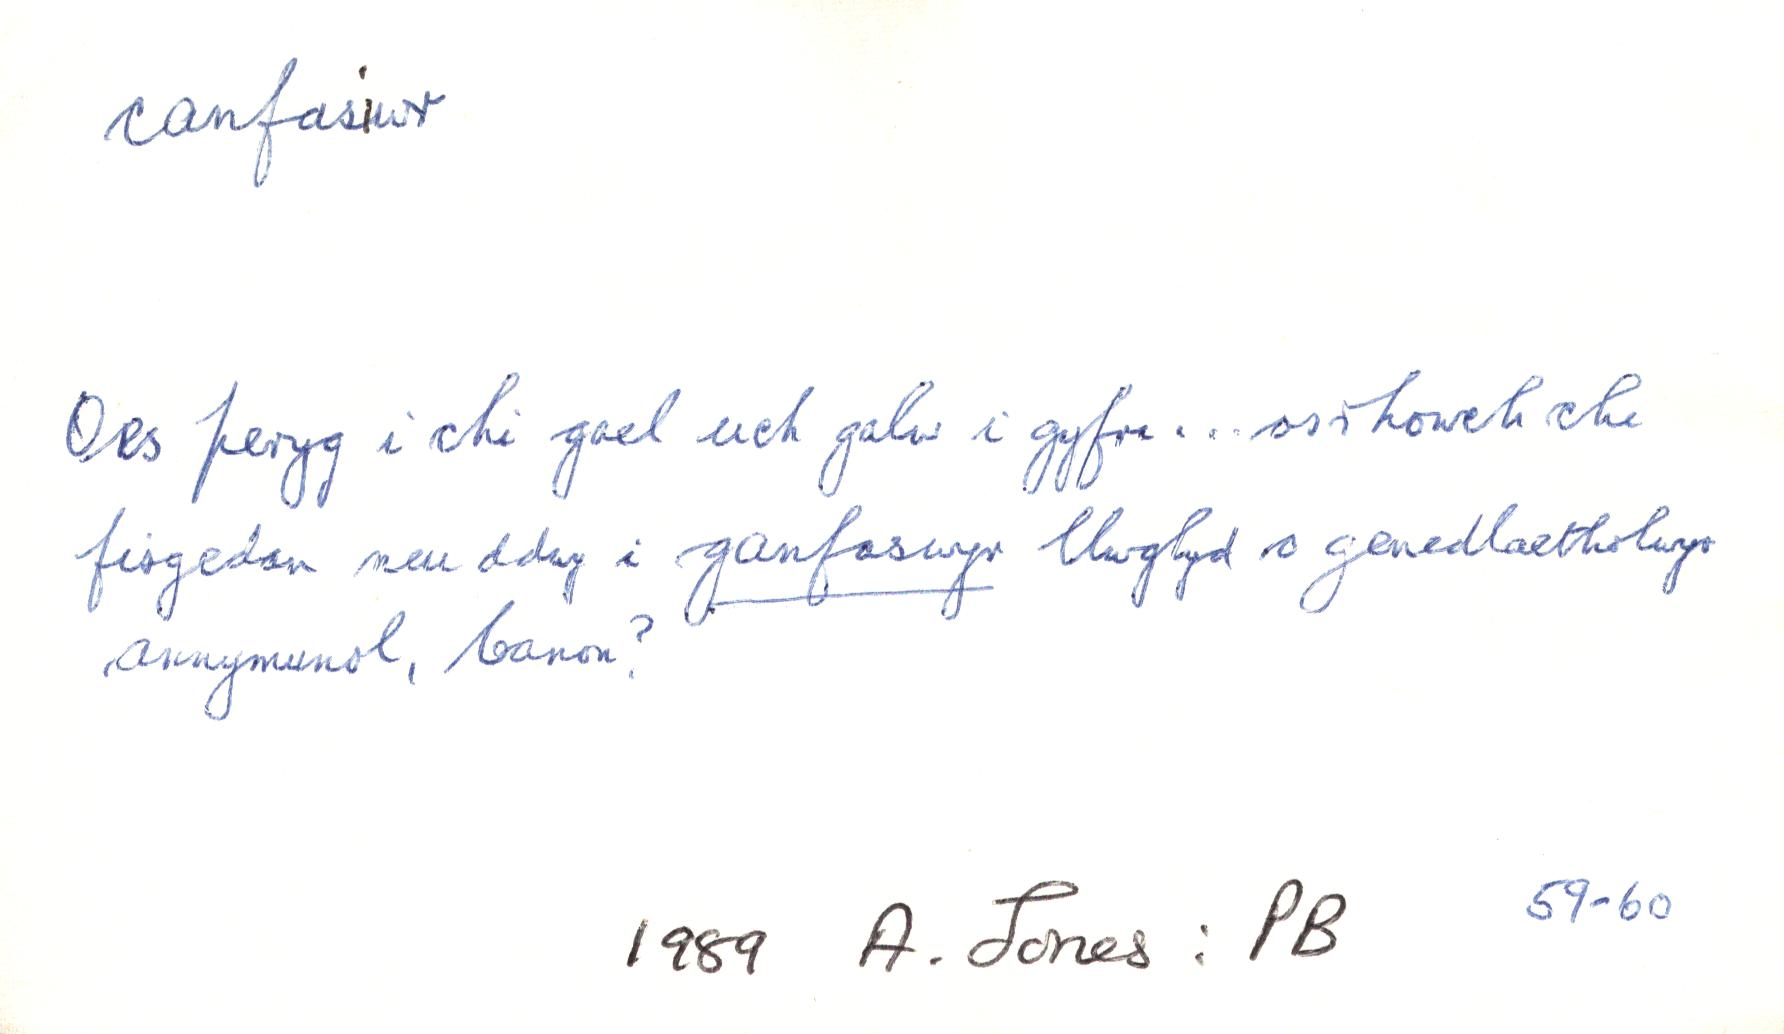 canfasiwr
Oes peryg i chi gael uch galw i gyfri ... os rhowch chi
fisgedan neu ddwy i ganfaswyr llwglyd o genedlaetholwyr
annymunol, Canon?
1989 A. Jones : PB 59-60